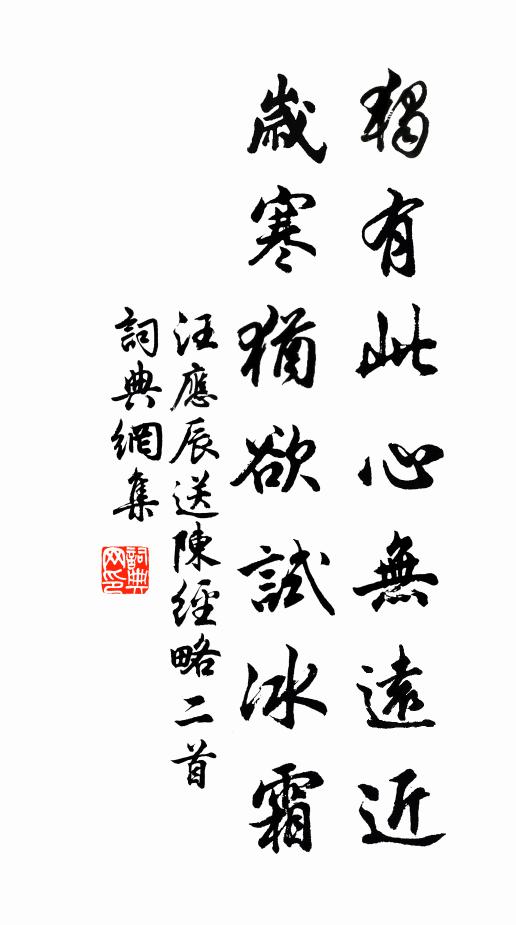 獨有此心無遠近
歲寒猶欲試冰霜
汪應辰送陳經略二首
詞典網集
詞典网印